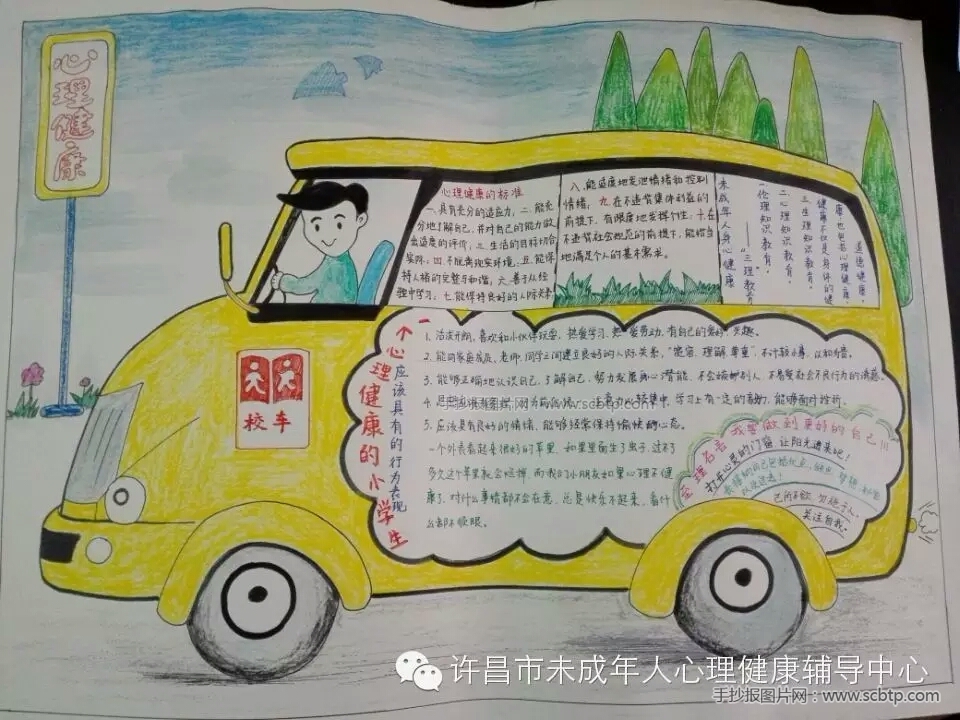 心理健康
心理健康的标准
一.具有充分的适应力,二.能充
分地了解自己,并对自己的能力做
出适度的评价,三.生活的目标切合
实际,四.不脱离现实环境,五.能保
持人格的完整与和谐,六.善于从经
验中学习,七.能保持良好的人际关系
八.能适度地发泄情绪和控制
情绪,九.在不违背集体利益的
前提下,有限度地发挥个性,十.在
不违背社会规范的前提下,能恰当
地满足个人的基本需求。
未成年人身心健康
——"三理教育"
一.伦理知识教育。
二.心理知识教育。
三.生理知识教育。
健康不仅是身体的健
康,也包括心理健康,
道德健康。
校车
一个心理健康的小学生
应该具有的行为表现
1、活泼开朗,喜欢和小伙伴玩耍,热爱学习,热爱劳动,有自己的爱好、兴趣。
2、能同家庭成员、老师、同学之间建立良好的人际关系,"宽容、理解、尊重",不计较小事,以和为贵。
3、能够正确地认识自己,了解自己,努力发展身心潜能,不会嫉妒别人,不易受社会不良行为的诱惑。
注意力比较集中,学习上有一定的毅力,能够面对挫折。
5、应该具有良好的情绪,能够经常保持愉快的心态。
一个外表看起来很好的苹果,如果里面生了虫子,过不了
多久这个苹果就会烂掉,而我们小朋友如果心理不健
康了,对什么事情都不会在意,总是快乐不起来,看什
么都不顺眼。
心理名言 我要做到更好的自己!!!
打开心灵的门窗,让阳光进来吧!
己所不欲,勿施于人。
关注自我。
手抄报图片网 www.scbtp.com
许昌市未成年人心理健康辅导中心
手抄报图片网:www.scbtp.com